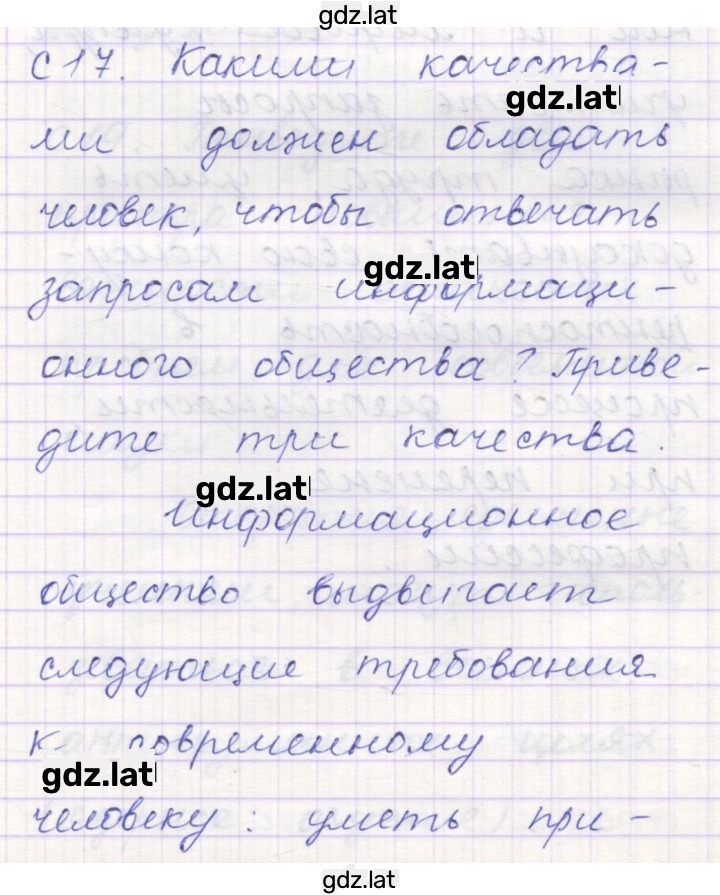 gdz.lat
С 17. Какими качества-
gdz.lat
ми должен обладать
человек, чтобы отвечать
gdz.lat
запросам информаци-
онного общества? Приве-
дите три качества.
gdz.lat
Информационное
общество выдвигает
следующие требования
к современному
gdz.lat
человеку: уметь при-
gdz.lat